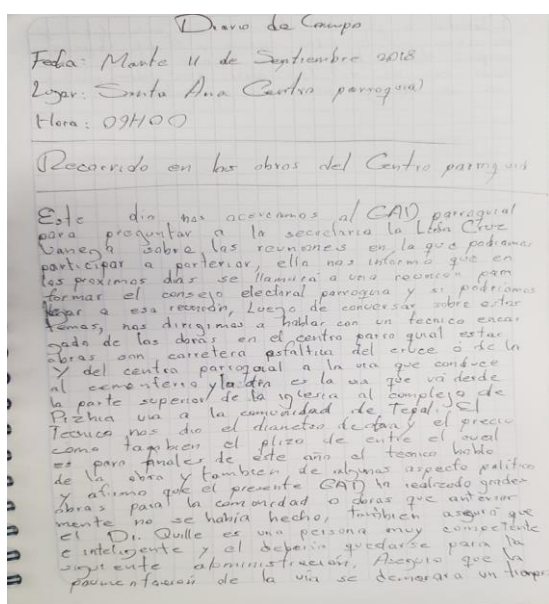 Diario de Campo
Fecha: Marte 11 de Septiembre 2018
Lugar: Santa Ana Centro parroquial
Hora: 09H00
Recorrido en las obras del Centro parroquial
Este dia nos acercamos al GAD parroquial
para preguntar a la secretaria la Lcda Cruz
Vanega sobre las reuniones en la que podriamos
participar a parterior, ella nos informo que en
los proximos dias se llamara a una reunion para
formar el consejo electoral parroquia y si podriamos
llegar a esa reunion, Luego de conversar sobre estos
temas, nos dirigimos a hablar con un tecnico encar
gado de las obras en el centro parroquial estas
obras son carretera asfaltica del cruce o de la
y del centro parroquial a la via que conduce
al cementerio y la otra es la via que va desde
la parte superior de la iglesia al complejo de
Pizhia via a la comunidad de Tepal. El
Tecnico nos dio el diametro de obra y el precio
como tambien el plazo de entre el cual
es para finales de este año el tecnico hablo
de la obra y tambien de algunas aspecto politico
y afirmo que el presente GAD ha realizado grades
obras para la comonidad o obras que anterior
mente no se había hecho, tambien aseguro que
el Dr. Quille es una persona muy competente
e inteligente y el deberia quedarse para la
siguiente administracion, Aseguro que la
pavimentacion de la via se demorara un tiempo